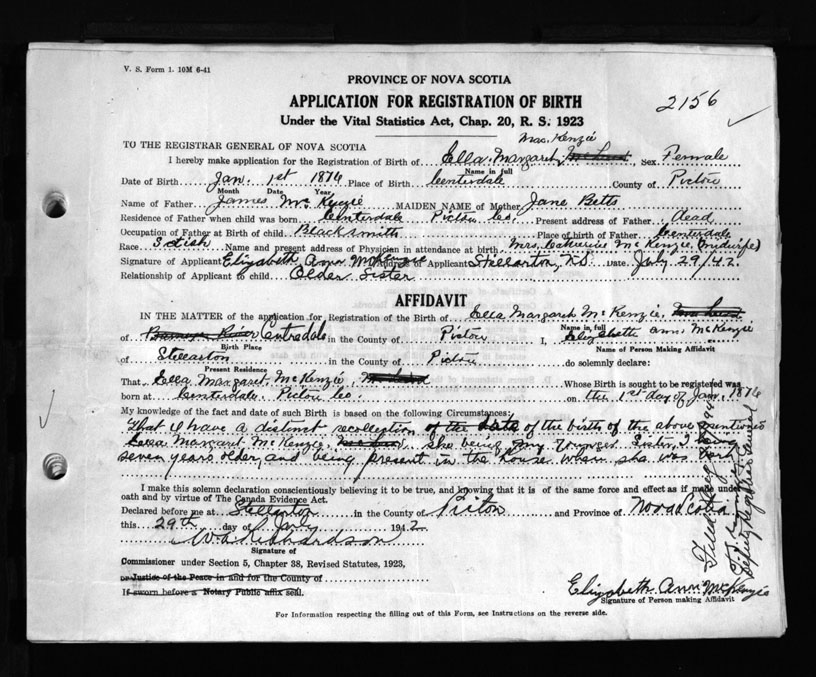 V. S. Form 1. 10M 6-41
PROVINCE OF NOVA SCOTIA
APPLICATION FOR REGISTRATION OF BIRTH
2156
Under the Vital Statistics Act, Chap. 20, R. S. 1923
TO THE REGISTRAR GENERAL OF NOVA SCOTIA
I hereby make application for the Registration of Birth of Ella Margaret McKenzie, Sex Female
Name in full
Date of Birth Jan. 1st 1876 Place of Birth Centerdale County of Pictou
Month Date Year
Name of Father James McKenzie MAIDEN NAME of Mother Jane Betts
Residence of Father when child was born Centerdale Pictou Co. Present address of Father dead
Occupation of Father at Birth of child Blacksmith Place of birth of Father Centerdale
Race Scotish Name and present address of Physician in attendance at birth Mrs. Catherine McKenzie (midwife)
Signature of Applicant Elizabeth Ann McKenzie Address of Applicant Stellarton, N.S. Date July 29/42.
Relationship of Applicant to child Older Sister
AFFIDAVIT
IN THE MATTER of the application for Registration of the Birth of Ella Margaret McKenzie,
Name in full
of Centredale in the County of Pictou I, Elizabeth Ann McKenzie
Birth Place Name of Person Making Affidavit
of Stellarton in the County of Pictou do solemnly declare:
Present Residence
That Ella Margaret McKenzie, Whose Birth is sought to be registered was
born at Centerdale Pictou Co. on the 1st day of Jan. 1876
My knowledge of the fact and date of such Birth is based on the following Circumstances:
That I have a distinct recollection of the date of the birth of the above mentioned
Ella Margaret McKenzie, she being my younger sister, I being
seven years older, and being present in the house when she was born
I make this solemn declaration conscientiously believing it to be true, and knowing that it is of the same force and effect as if made under
oath and by virtue of The Canada Evidence Act.
Declared before me at Stellarton in the County of Pictou and Province of Nova Scotia
this 29th day of July 1942.
W.A. Richardson
Signature of
Commissioner under Section 5, Chapter 38, Revised Statutes, 1923,
or Justice of the Peace in and for the County of
If sworn before a Notary Public affix seal.
Elizabeth Ann McKenzie
Signature of Person making Affidavit
For Information respecting the filling out of this Form, see Instructions on the reverse side.
Deputy Registrar General